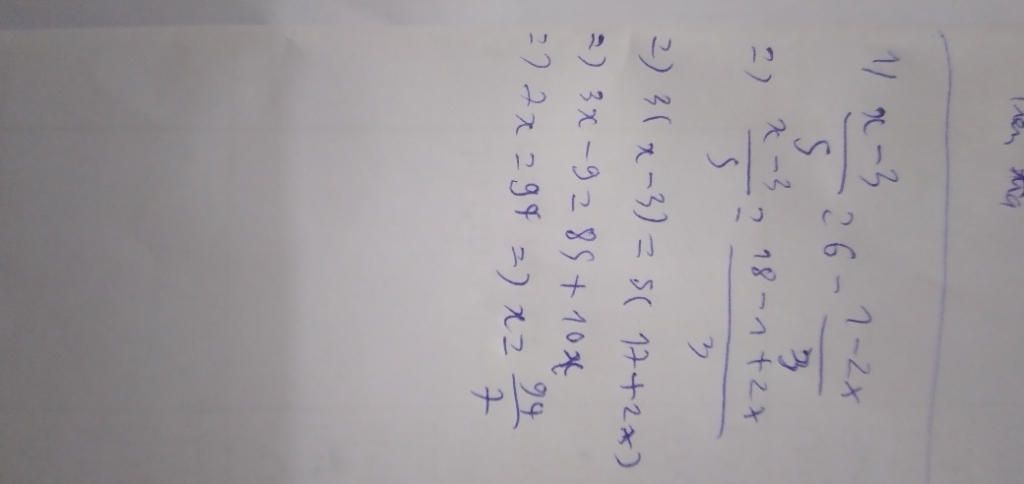 1) x-3/5 = 6 - 1-2x/3
=) x-3/5 = 18-1+2x/3
=) 3(x-3) = 5(17+2x)
=) 3x-9 = 85+10x
=) 7x = 94 =) x = 94/7